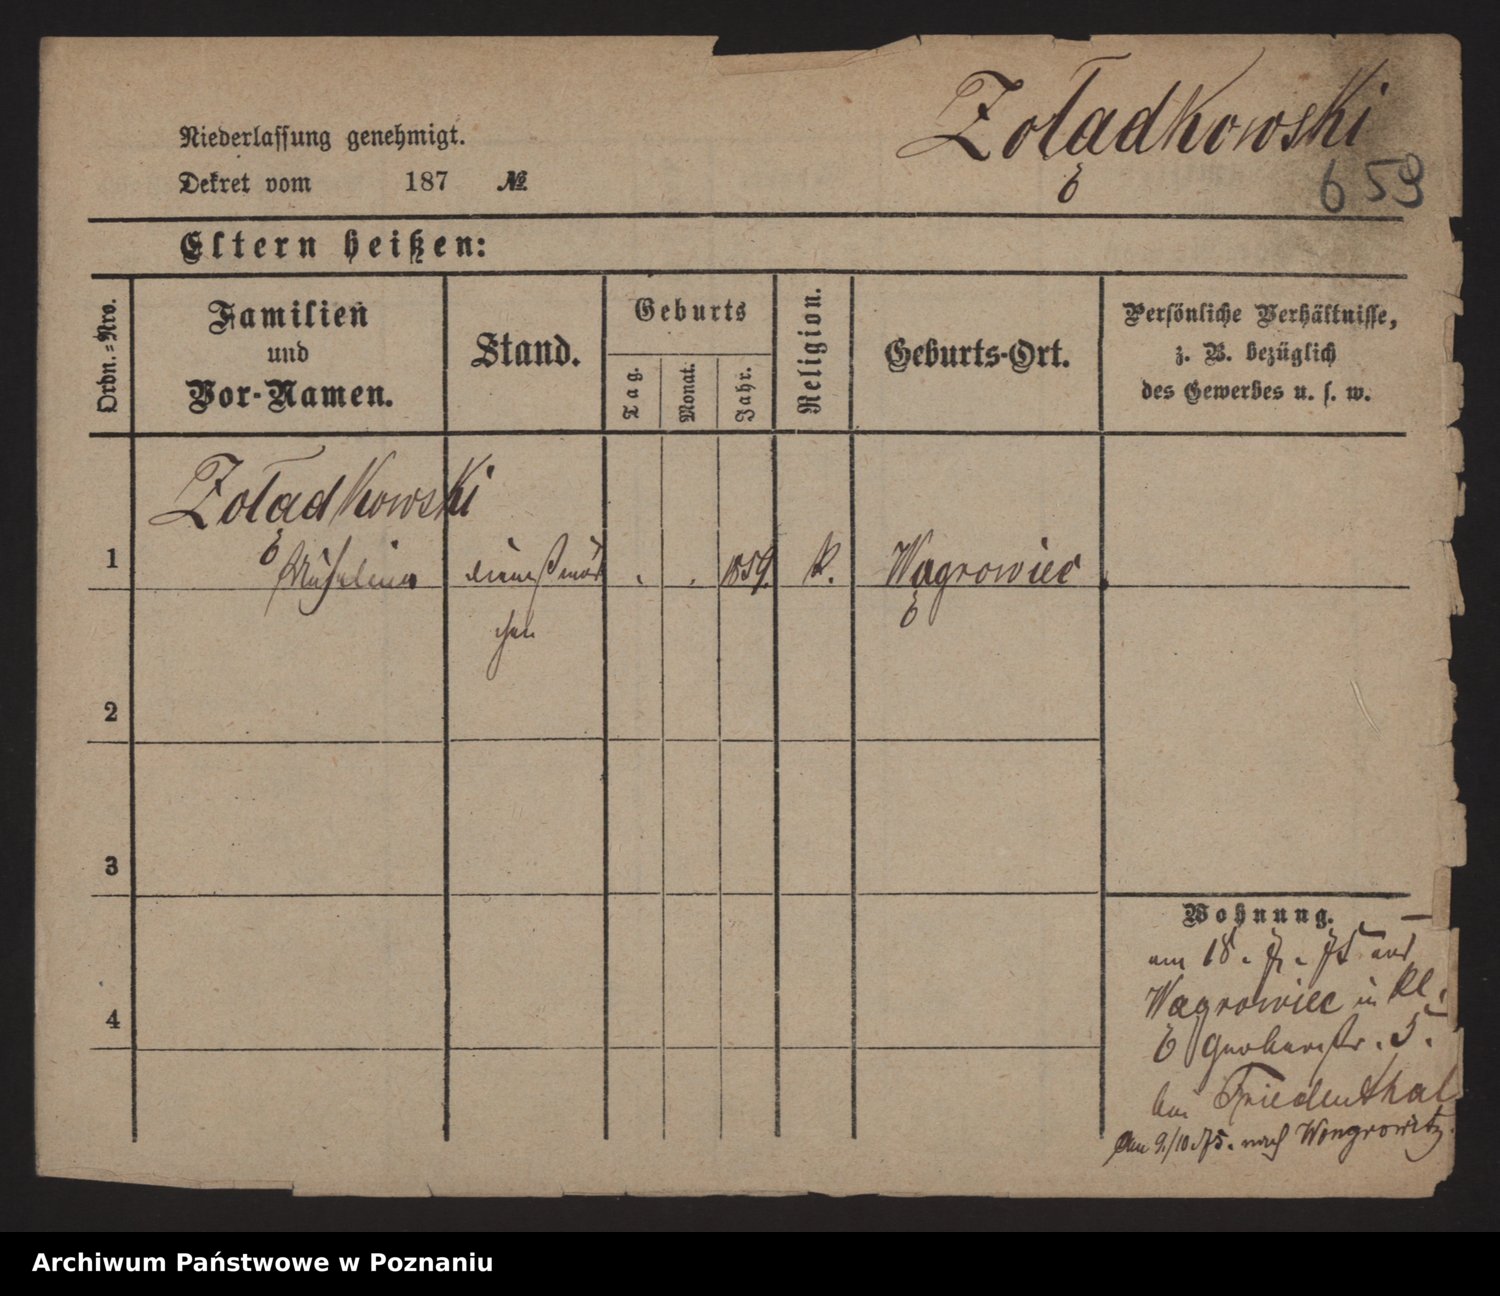 Żołądkowski
659
Niederlassung genehmigt.
Dekret vom 187 №
Eltern heißen:
Ordn.=Nro.
Familien
und
Vor-Namen.
Stand.
Geburts
Tag.
Monat.
Jahr.
Religion.
Geburts-Ort.
Persönliche Verhältnisse,
z. B. bezüglich
des Gewerbes u. s. w.
Żołądkowski
1 dienstmäd 1859. k. Wągrowiec
chen
2
3
4
Wohnung.
am 18. 7. 75 aus
Wągrowiec in Kl.
Gerberstr. 5.
bei Friedenthal
Am 9./10.75. nach Wongrowitz.
Archiwum Państwowe w Poznaniu